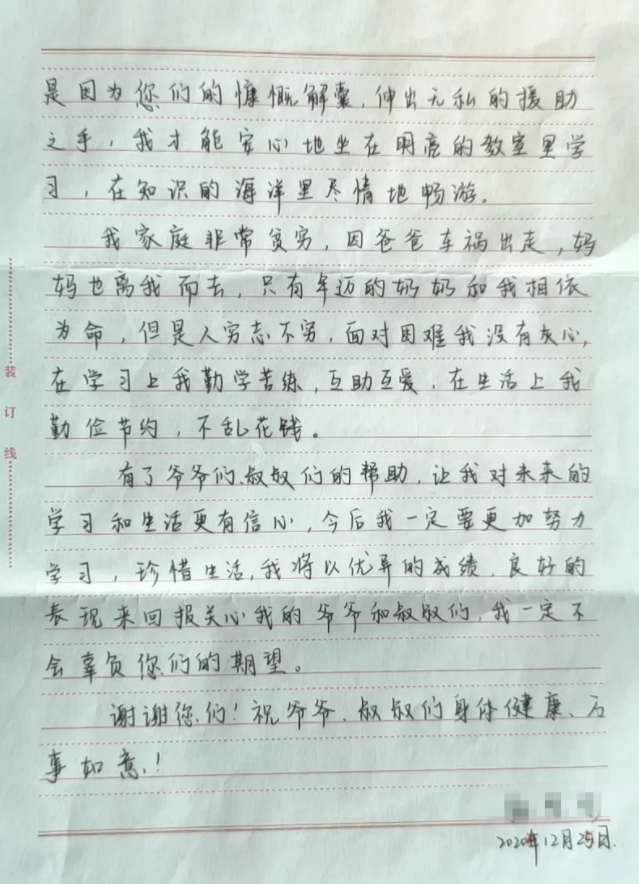 是因为您们的慷慨解囊,伸出无私的援助
之手,我才能安心地坐在明亮的教室里学
习,在知识的海洋里尽情地畅游。
我家庭非常贫穷,因爸爸车祸出走,妈
妈也离我而去,只有年迈的奶奶和我相依
为命,但是人穷志不穷,面对困难我没有灰心,
在学习上我勤学苦练,互助互爱,在生活上我
勤俭节约,不乱花钱。
有了爷爷们、叔叔们的帮助,让我对未来的
学习和生活更有信心,今后我一定要更加努力
学习,珍惜生活,我将以优异的成绩,良好的
表现来回报关心我的爷爷和叔叔们,我一定不
会辜负您们的期望。
谢谢您们!祝爷爷、叔叔们身体健康、万
事如意!
2020年12月25日.
装
订
线